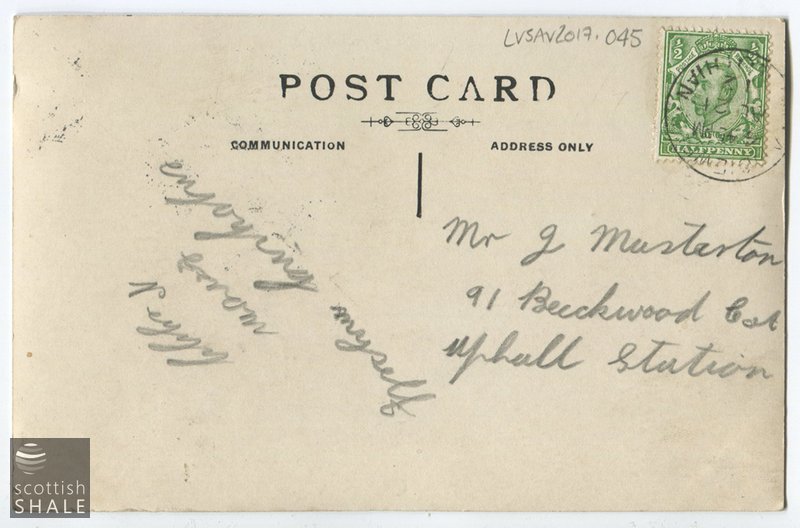 LVSAV2017.045
POST CARD
COMMUNICATION
ADDRESS ONLY
½ ½
HALFPENNY
enjoying myself
Mr J Masterton
91 Beechwood Cot
Uphall Station
scottish
SHALE